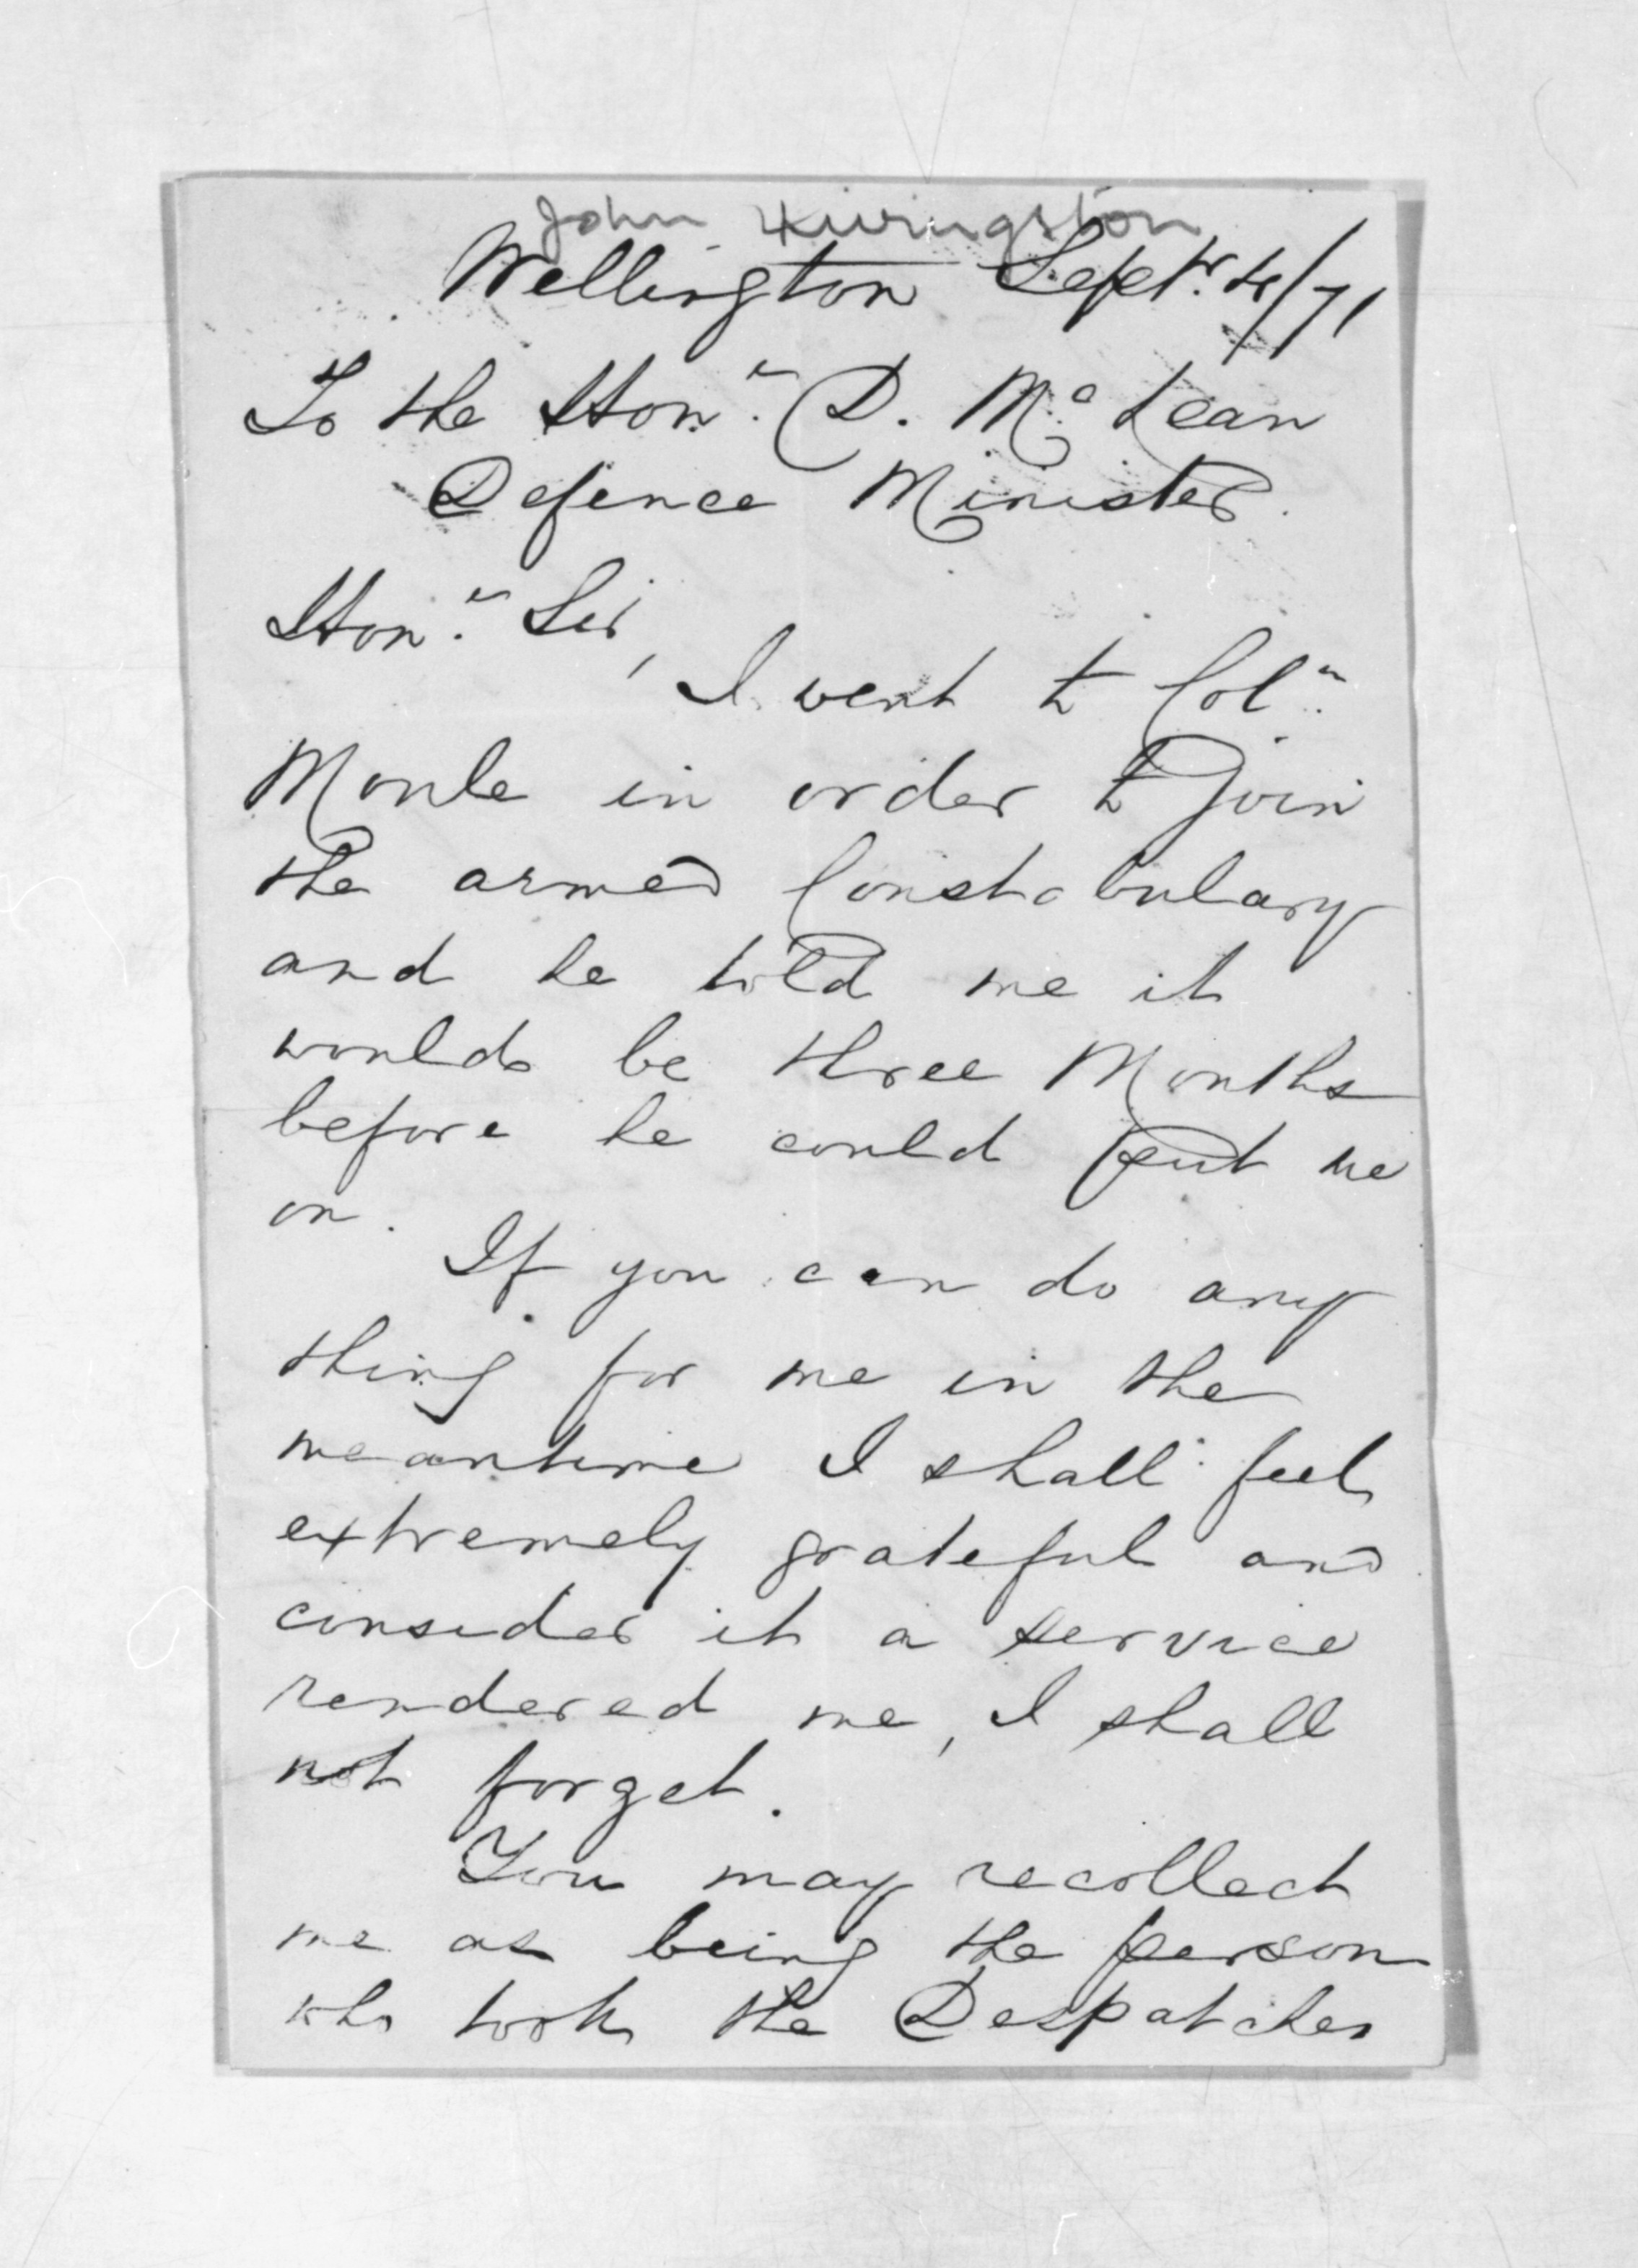 John Livingston
Wellington Septr. 4/71
To the Honr. D. Mc Lean
Defence Minister.
Honr. Sir,
I went to Coln.
Moule in order to Join
the armed Constabulary
and he told me it
would be three Months
before he could put me
on.
If you can do any
thing for me in the
meantime I shall feel
extremely grateful and
consider it a service
rendered me, I shall
not forget.
You may recollect
me as being the person
who took the Despatches